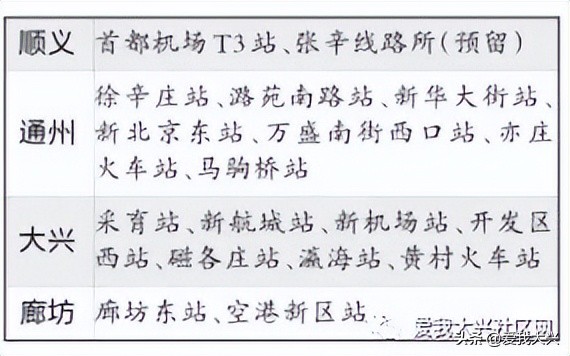 顺义 首都机场T3站、张辛线路所(预留)
通州 徐辛庄站、潞苑南路站、新华大街站、
新北京东站、万盛南街西口站、亦庄
火车站、马驹桥站
大兴 采育站、新航城站、新机场站、开发区
西站、磁各庄站、瀛海站、黄村火车站
廊坊 廊坊东站、空港新区站
爱我大兴社区网
头条@爱我大兴